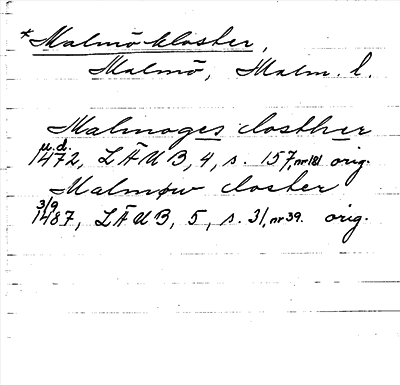 *Malmö kloster,
Malmö, Malm. l.
Malmoges closther
u.d.
1472, LÄUB, 4, s. 157, nr 181 orig.
Malmøw closter
3/9
1487, LÄUB, 5, s. 31, nr 39. orig.